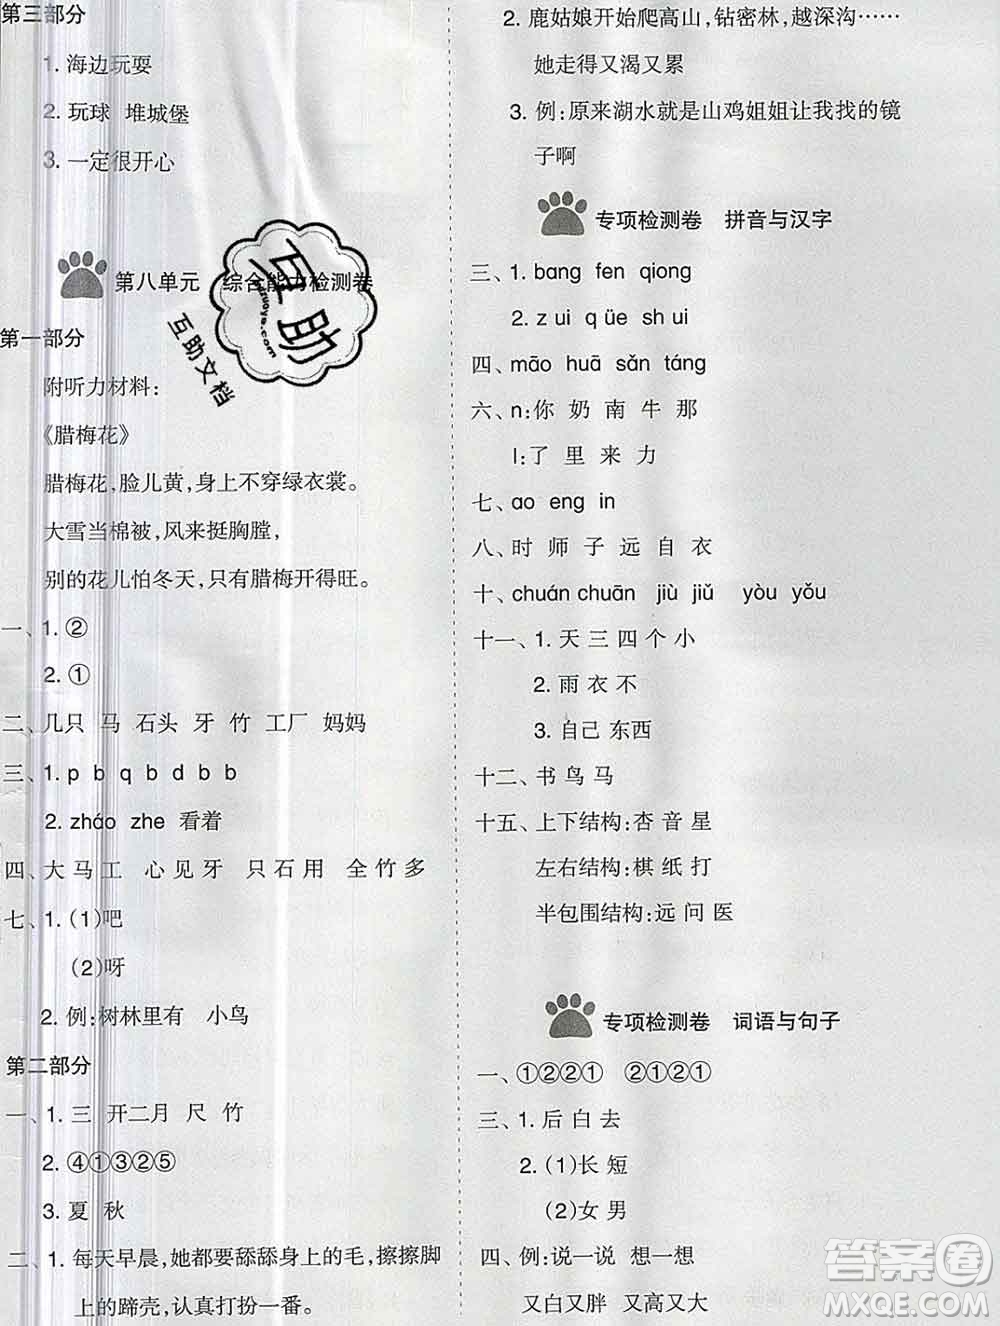 第三部分
1. 海边玩耍
2. 玩球 堆城堡
3. 一定很开心
第八单元 综合能力检测卷
第一部分
附听力材料:
《腊梅花》
腊梅花,脸儿黄,身上不穿绿衣裳。
大雪当棉被,风来挺胸膛,
别的花儿怕冬天,只有腊梅开得旺。
一、1. ②
2. ①
二、几只 马 石头 牙 竹 工厂 妈妈
三、1. p b q b d b b
2. zháo zhe 看着
四、大 马 工 心 见 牙 只 石 用 全 竹 多
七、1. (1)吧
(2)呀
2. 例:树林里有 小鸟
第二部分
一、1. 三 开 二 月 尺 竹
2. ④①③②⑤
3. 夏 秋
二、1. 每天早晨,她都要舔舔身上的毛,擦擦脚
上的蹄壳,认真打扮一番。
2. 鹿姑娘开始爬高山,钻密林,越深沟……
她走得又渴又累
3. 例:原来湖水就是山鸡姐姐让我找的镜
子啊
专项检测卷 拼音与汉字
三、1. bang fen qiong
2. z ui q üe sh ui
四、māo huā sǎn táng
六、n:你 奶 南 牛 那
l:了 里 来 力
七、ao eng in
八、时 师 子 远 自 衣
十、chuán chuān jiù jiǔ yòu yǒu
十一、1. 天 三 四 个 小
2. 雨 衣 不
3. 自己 东西
十二、书 鸟 马
十五、上下结构:杏 音 星
左右结构:棋 纸 打
半包围结构:远 问 医
专项检测卷 词语与句子
一、①②②① ②①②①
三、1. 后 白 去
2. (1)长 短
(2)女 男
四、例:说一说 想一想
又白又胖 又高又大
互助
互助文档
答案圈
MXQE.COM